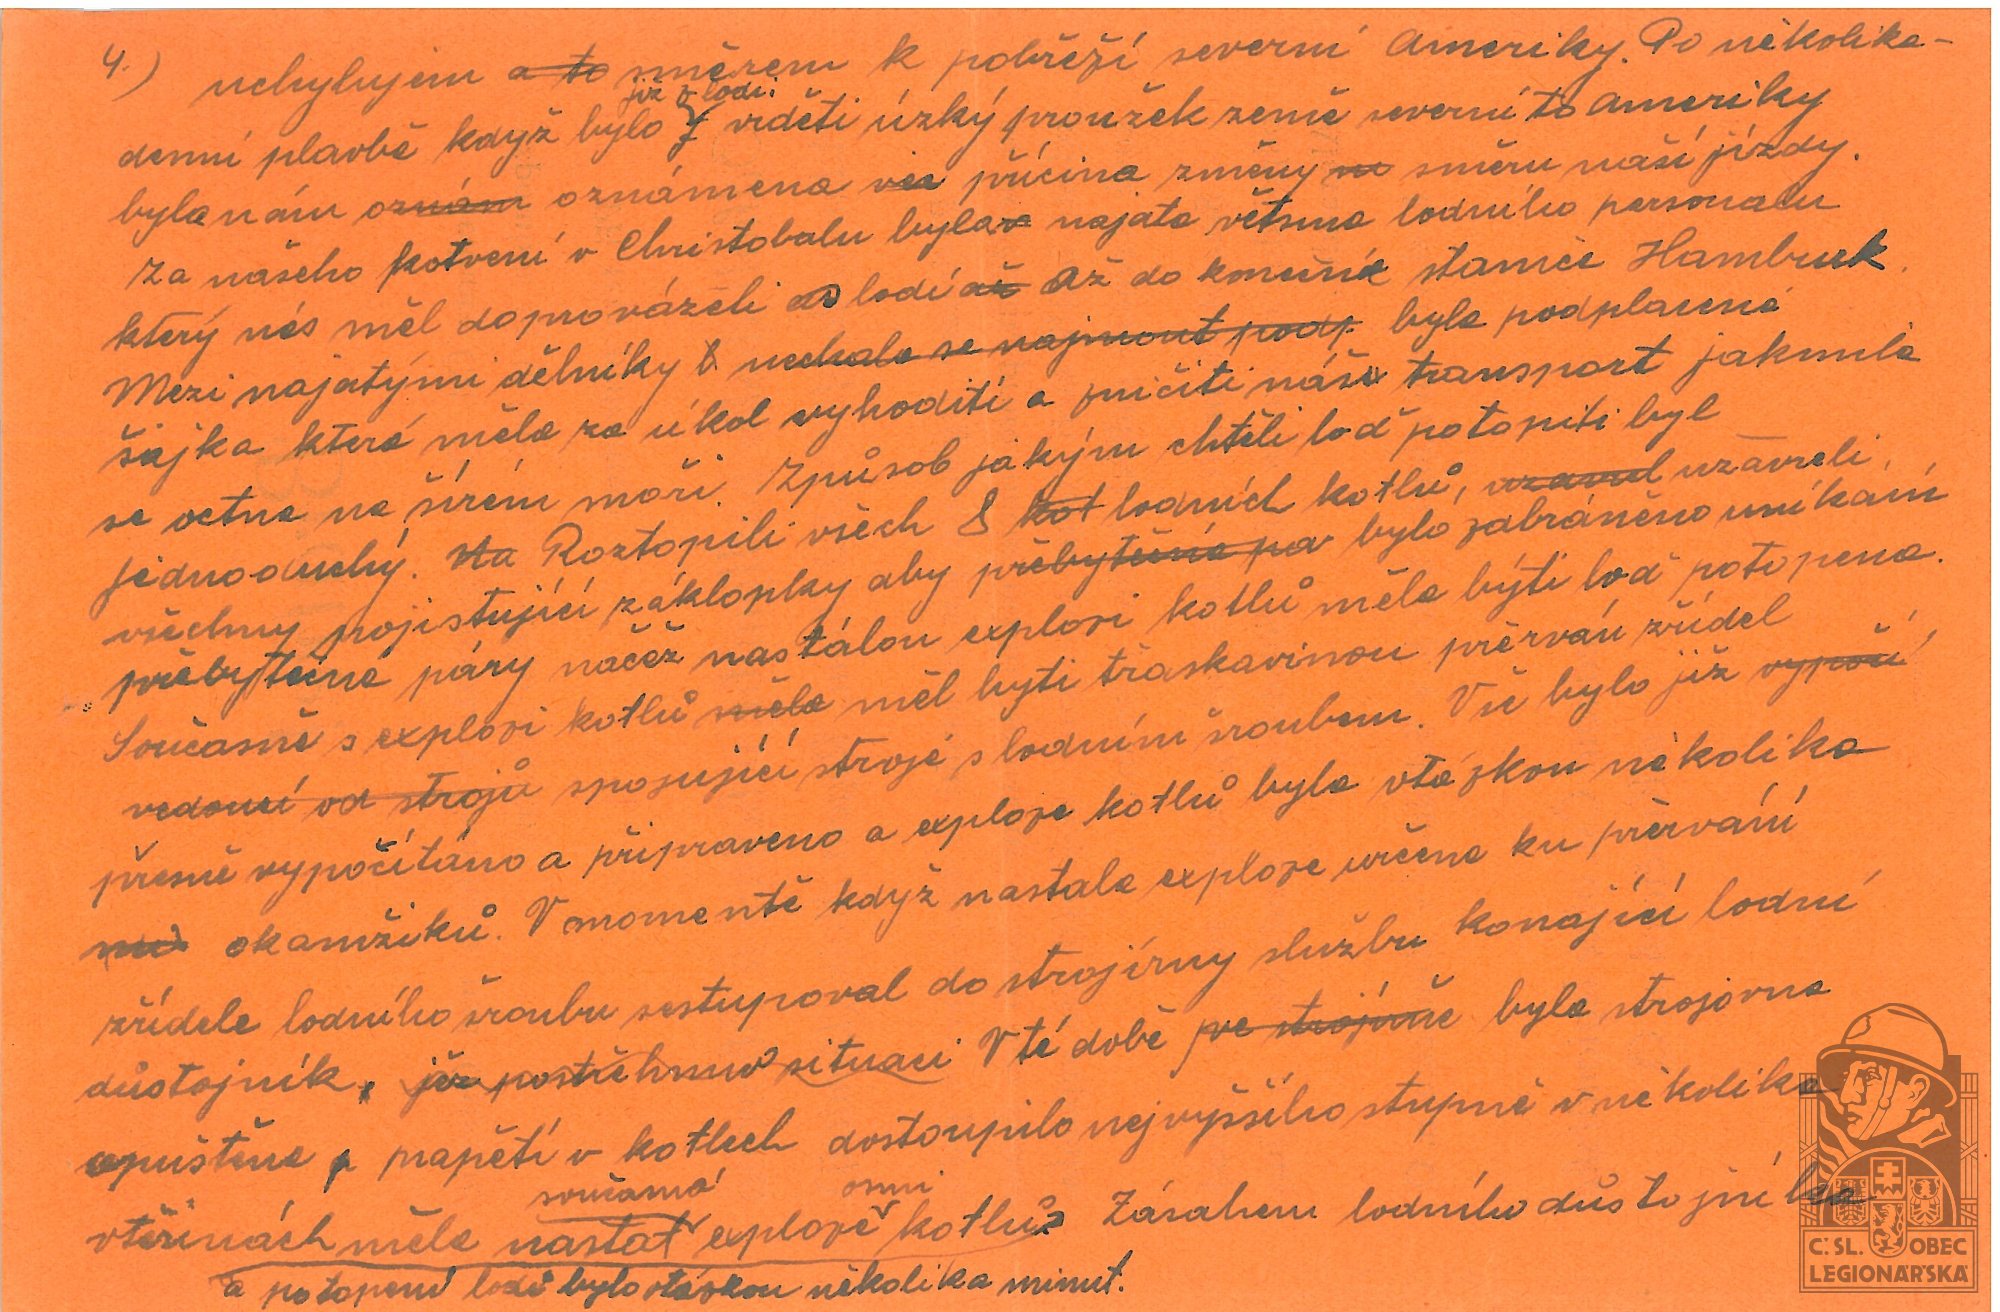 4.) uchylujem a to směrem k pobřeží severní Ameriky. Po několika-
již z lodi
denní plavbě když bylo viděti úzký proužek země severní to Ameriky
byla nám oznám oznámena příčina změny směru naší jízdy.
Za našeho kotvení v Christobalu byla najata větsina lodního personalu
který nás měl doprovázeti lodí až až do konečné stanice Hambruk.
Mezi najatými dělníky nechala se najmout podp. byla podplacená
šajka která měla za úkol vyhoditi a zničiti náš transport jakmile
se octne na šírém moři. Způsob jakým chtěli loď potopiti byl
jednoduchý. Na Roztopili všech 8 kot lodních kotlů, uzavrel uzavreli,
všechny projistující záklopky aby přebytečná pa bylo zabráněno unikání
přebytečné páry načež nastálou explosi kotlů měla býti loď potopena.
Současně s explosi kotlů měla měl byti třaskavinou přerván zřídel
vedoucí od strojů spojující stroje s lodním šroubem. Vše bylo již vypočí
přesně vypočítáno a připraveno a explose kotlů byla otázkou několika
okamžiků. V momentě když nastala explose určena ku přervání
zřídele lodního šroubu sestupoval do strojírny službu konající lodní
důstojník, jež postřehnuv situaci V té době ve strojírně byla strojovna
opuštěna a napětí v kotlech dostoupilo nejvyššího stupně v několika
současná osmi
vteřinách měla nastat explose kotlů. Zásahem lodního důstojníka
a potopení lodě bylo otázkou několika minut.
Č.SL. OBEC
LEGIONÁŘSKÁ